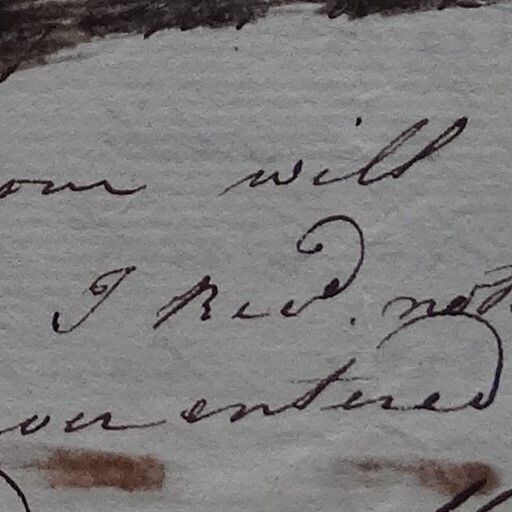 will
I Recd. not
entered